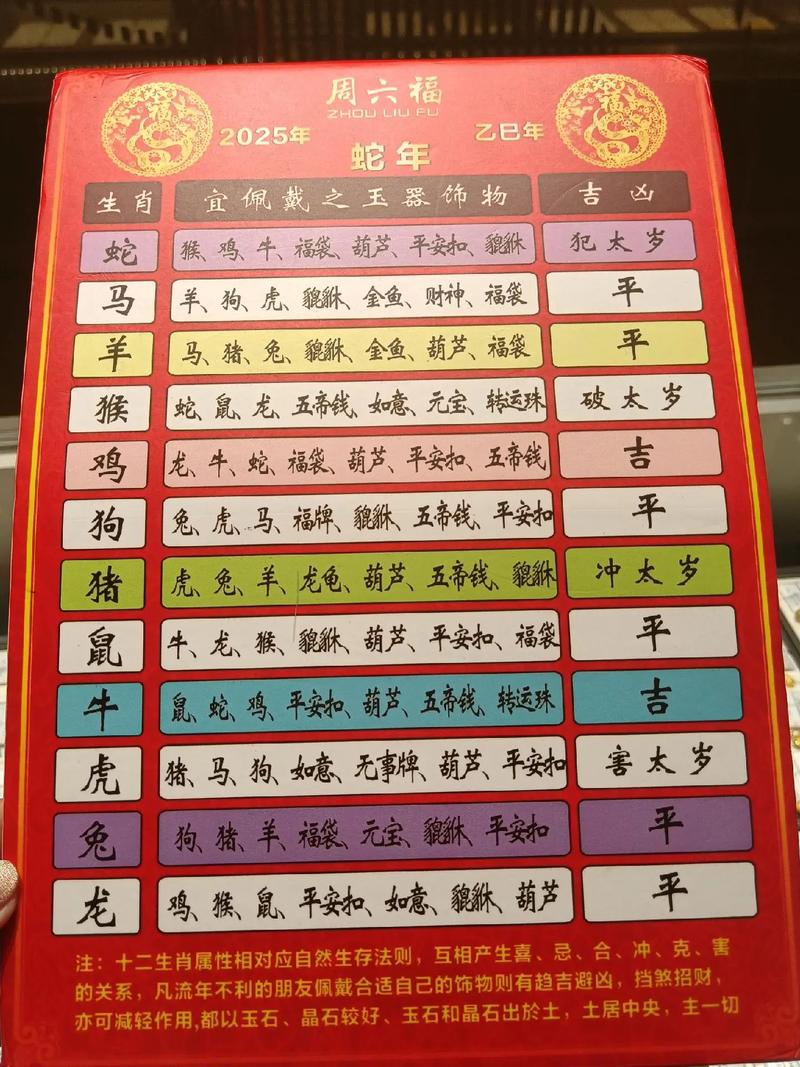 周六福
ZHOU LIU FU
福 2025年 乙巳年 福
蛇年
生肖 宜佩戴之玉器饰物 吉凶
蛇 猴、鸡、牛、福袋、葫芦、平安扣、貔貅 犯太岁
马 羊、狗、虎、貔貅、金鱼、财神、福袋 平
羊 马、猪、兔、貔貅、金鱼、葫芦、福袋 平
猴 蛇、鼠、龙、五帝钱、如意、元宝、转运珠 破太岁
鸡 龙、牛、蛇、福袋、葫芦、平安扣、五帝钱 吉
狗 兔、虎、马、福牌、貔貅、五帝钱、平安扣 平
猪 虎、兔、羊、龙龟、葫芦、五帝钱、貔貅 冲太岁
鼠 牛、龙、猴、貔貅、葫芦、平安扣、福袋 平
牛 鼠、蛇、鸡、平安扣、葫芦、五帝钱、转运珠 吉
虎 猪、马、狗、如意、无事牌、葫芦、平安扣 害太岁
兔 狗、猪、羊、福袋、元宝、貔貅、平安扣 平
龙 鸡、猴、鼠、平安扣、如意、貔貅、葫芦 平
注：十二生肖属性相对应自然生存法则，互相产生喜、忌、合、冲、克、害
的关系，凡流年不利的朋友佩戴合适自己的饰物则有趋吉避凶，挡煞招财，
亦可减轻作用,都以玉石、晶石较好、玉石和晶石出於土，土居中央，主一切